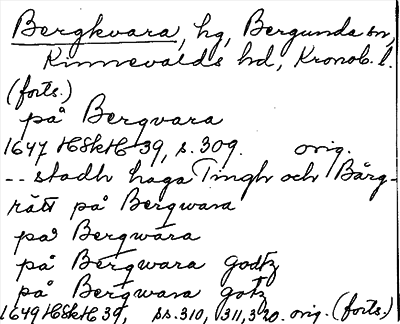 Bergkvara, hg, Bergunda sn,
Kinnevalds hd, Kronob. l.
(forts.)
på Bergvara
1647 HSkH 39, s. 309. orig.
-- stadh haga Tingh och Bärg-
rätt på Bergwara
på Bergwara
på Bergwara godtz
på Bergwara gotz
1649 HSkH 39, ss. 310, 311, 320. orig. (forts.)